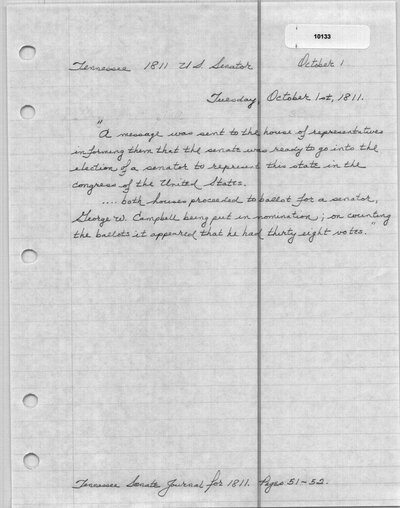 10133
Tennessee 1811 U.S. Senator October 1
Tuesday, October 1st, 1811.
"
A message was sent to the house of representatives
informing them that the senate was ready to go into the
election of a senator to represent this state in the
congress of the United States.
.... both houses proceeded to ballot for a senator,
George W. Campbell being put in nomination; on counting
the ballots it appeared that he had thirty eight votes."
Tennessee Senate Journal for 1811. Pages 51-52.